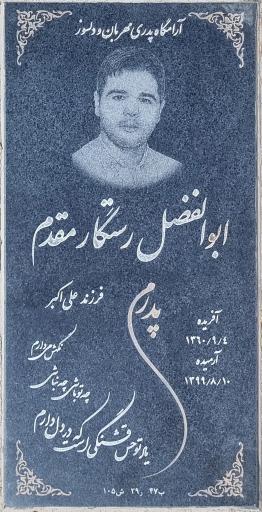 آرامگاه پدری مهربان و دلسوز
ابوالفضل رستگار مقدم
فرزند علی اکبر
پدرم
آفریده
۱۳۶۰/۹/۴
آرمیده
۱۳۹۹/۸/۱۰
چه تو باشی چه نباشی
نگهش می دارم
یاد تو حس قشنگی است که در دل دارم
ب۴۷ ر۲۹ ش۱۰۵